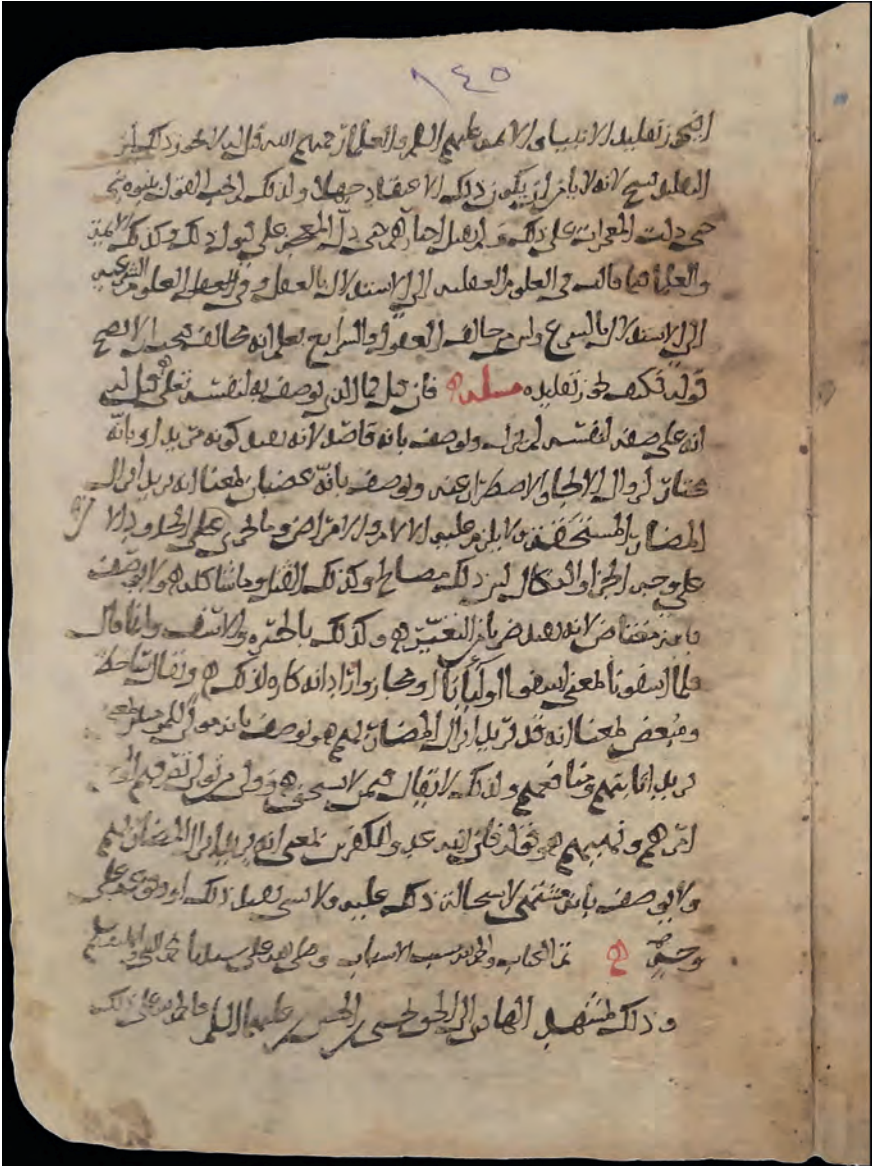 ١٤٥
ايجوز تقليد الانبيا والائمه عليهم السلم والعلما رحمهم الله قيل له لا يجوز ذلك لان
التقليد قبيح لانه لا يامن ان يكون ذلك الاعتقاد جهلا ولذلك لم يجب القول بنبوه نبي
حتى دلت المعجزات على ذلك ولم نقبل اخبارهم حتى دل المعجز على ذلك وكذلك الائمة
والعلما فيما قالت في العلوم العقليه الى الاستدلال بالعقل وفي العلوم الشرعيه
الى الاستدلال بالشرع وان من خالف العقول والشرايع يعلم انه مخالف يجب ان لا يصح
قوله فكيف يجوز تقليده مسله فان قيل فما الذي يوصف به لنفسه تعلى قيل له
انه على صفه لنفسه لم يزل ويوصف بانه قاصد لانه يفيد كونه مريدا وبانه
مختار لزوال الالجا والاضطرار عنه ويوصف بانه غضبان بمعنا انه يريد انزال
المضار المستحقة ولا يلزم عليه الالام والامراض وما يجري على الحدود لا
على وجه الجزا والنكال لان ذلك مصالح وكذلك القتل وما شاكله ولا يوصف
بانه مغتاض لانه يفيد ضربا من التغير وكذلك بالحسره والاسف وانما قال
فلما اسفونا بمعنى اسفوا اوليانا او مجاز وارادانه كاره لذلك ويقال ساخط
ومبغض بمعنا انه قد يريد انزال المضار بهم ويوصف بانه موال للمومنين بمعنى
يريد اثابتهم ومنافعهم ولذلك لا يقال فيمن لا يستحق
امرهم ونهيهم وقوله فان الله عدو للكفرين بمعنى انه يريد انزال المضار بهم
ولا يوصف بانه مشتهي لاستحالة ذلك عليه
تم الكتاب والحمد لله مسبب الاسباب وصلى الله على سيدنا محمد النبي واله وسلم
وذلك بمشهد الهادي الى الحق يحيى بن الحسين عليه السلم والحمد لله على ذلك